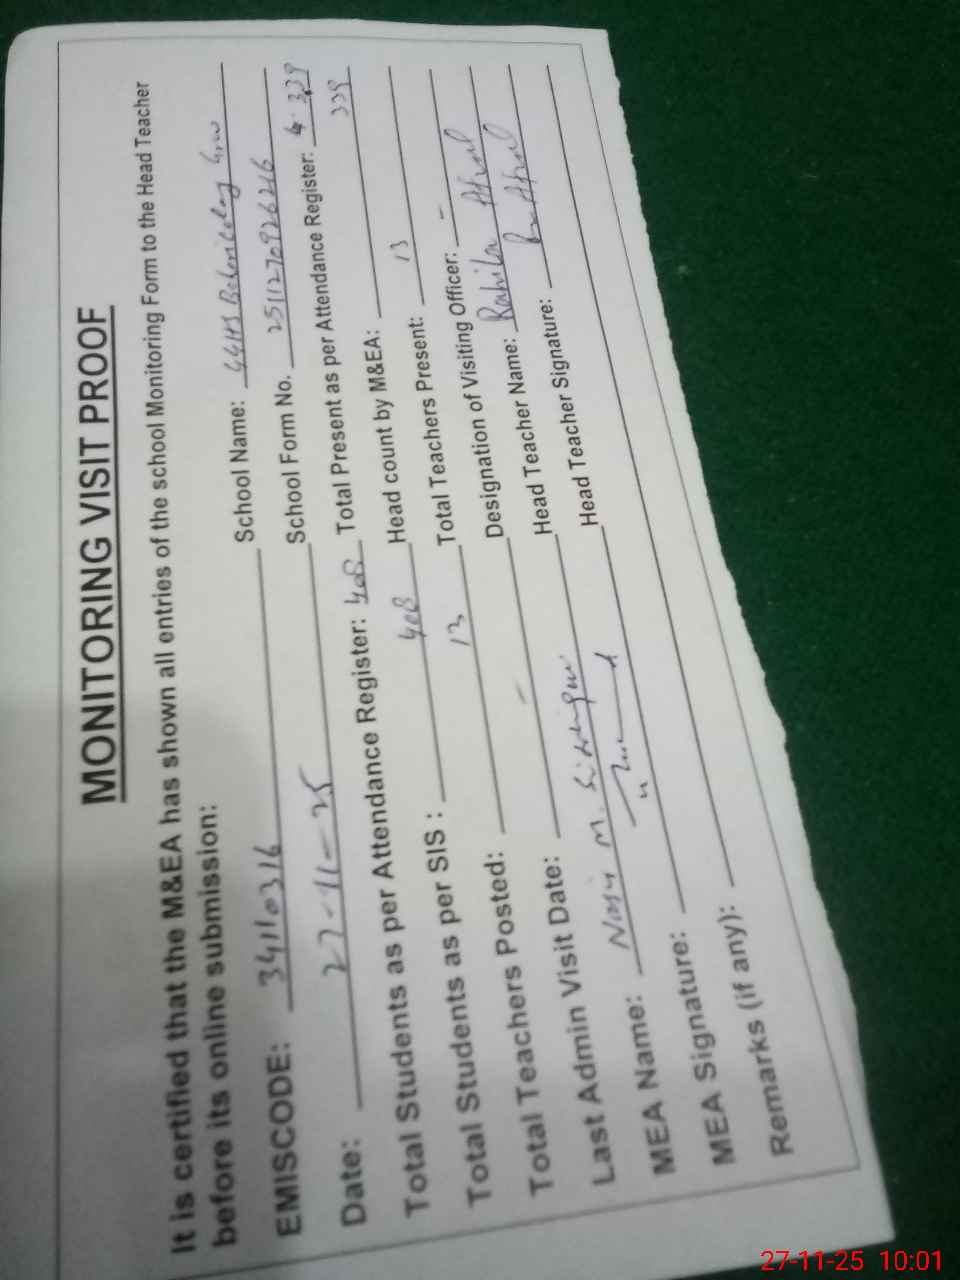 MONITORING VISIT PROOF
It is certified that the M&EA has shown all entries of the school Monitoring Form to the Head Teacher
before its online submission:
EMISCODE: 34110316 School Name: GGHS
Date: 27-11-25 School Form No. 2511270926216
Total Students as per Attendance Register: 408 Total Present as per Attendance Register: 339
Total Students as per SIS : 408 Head count by M&EA: 339
Total Teachers Posted: 13 Total Teachers Present: 13
Last Admin Visit Date: - Designation of Visiting Officer: -
MEA Name: M. Head Teacher Name: Rahila Afzal
MEA Signature: Head Teacher Signature: Afzal
Remarks (if any):
27-11-25 10:01